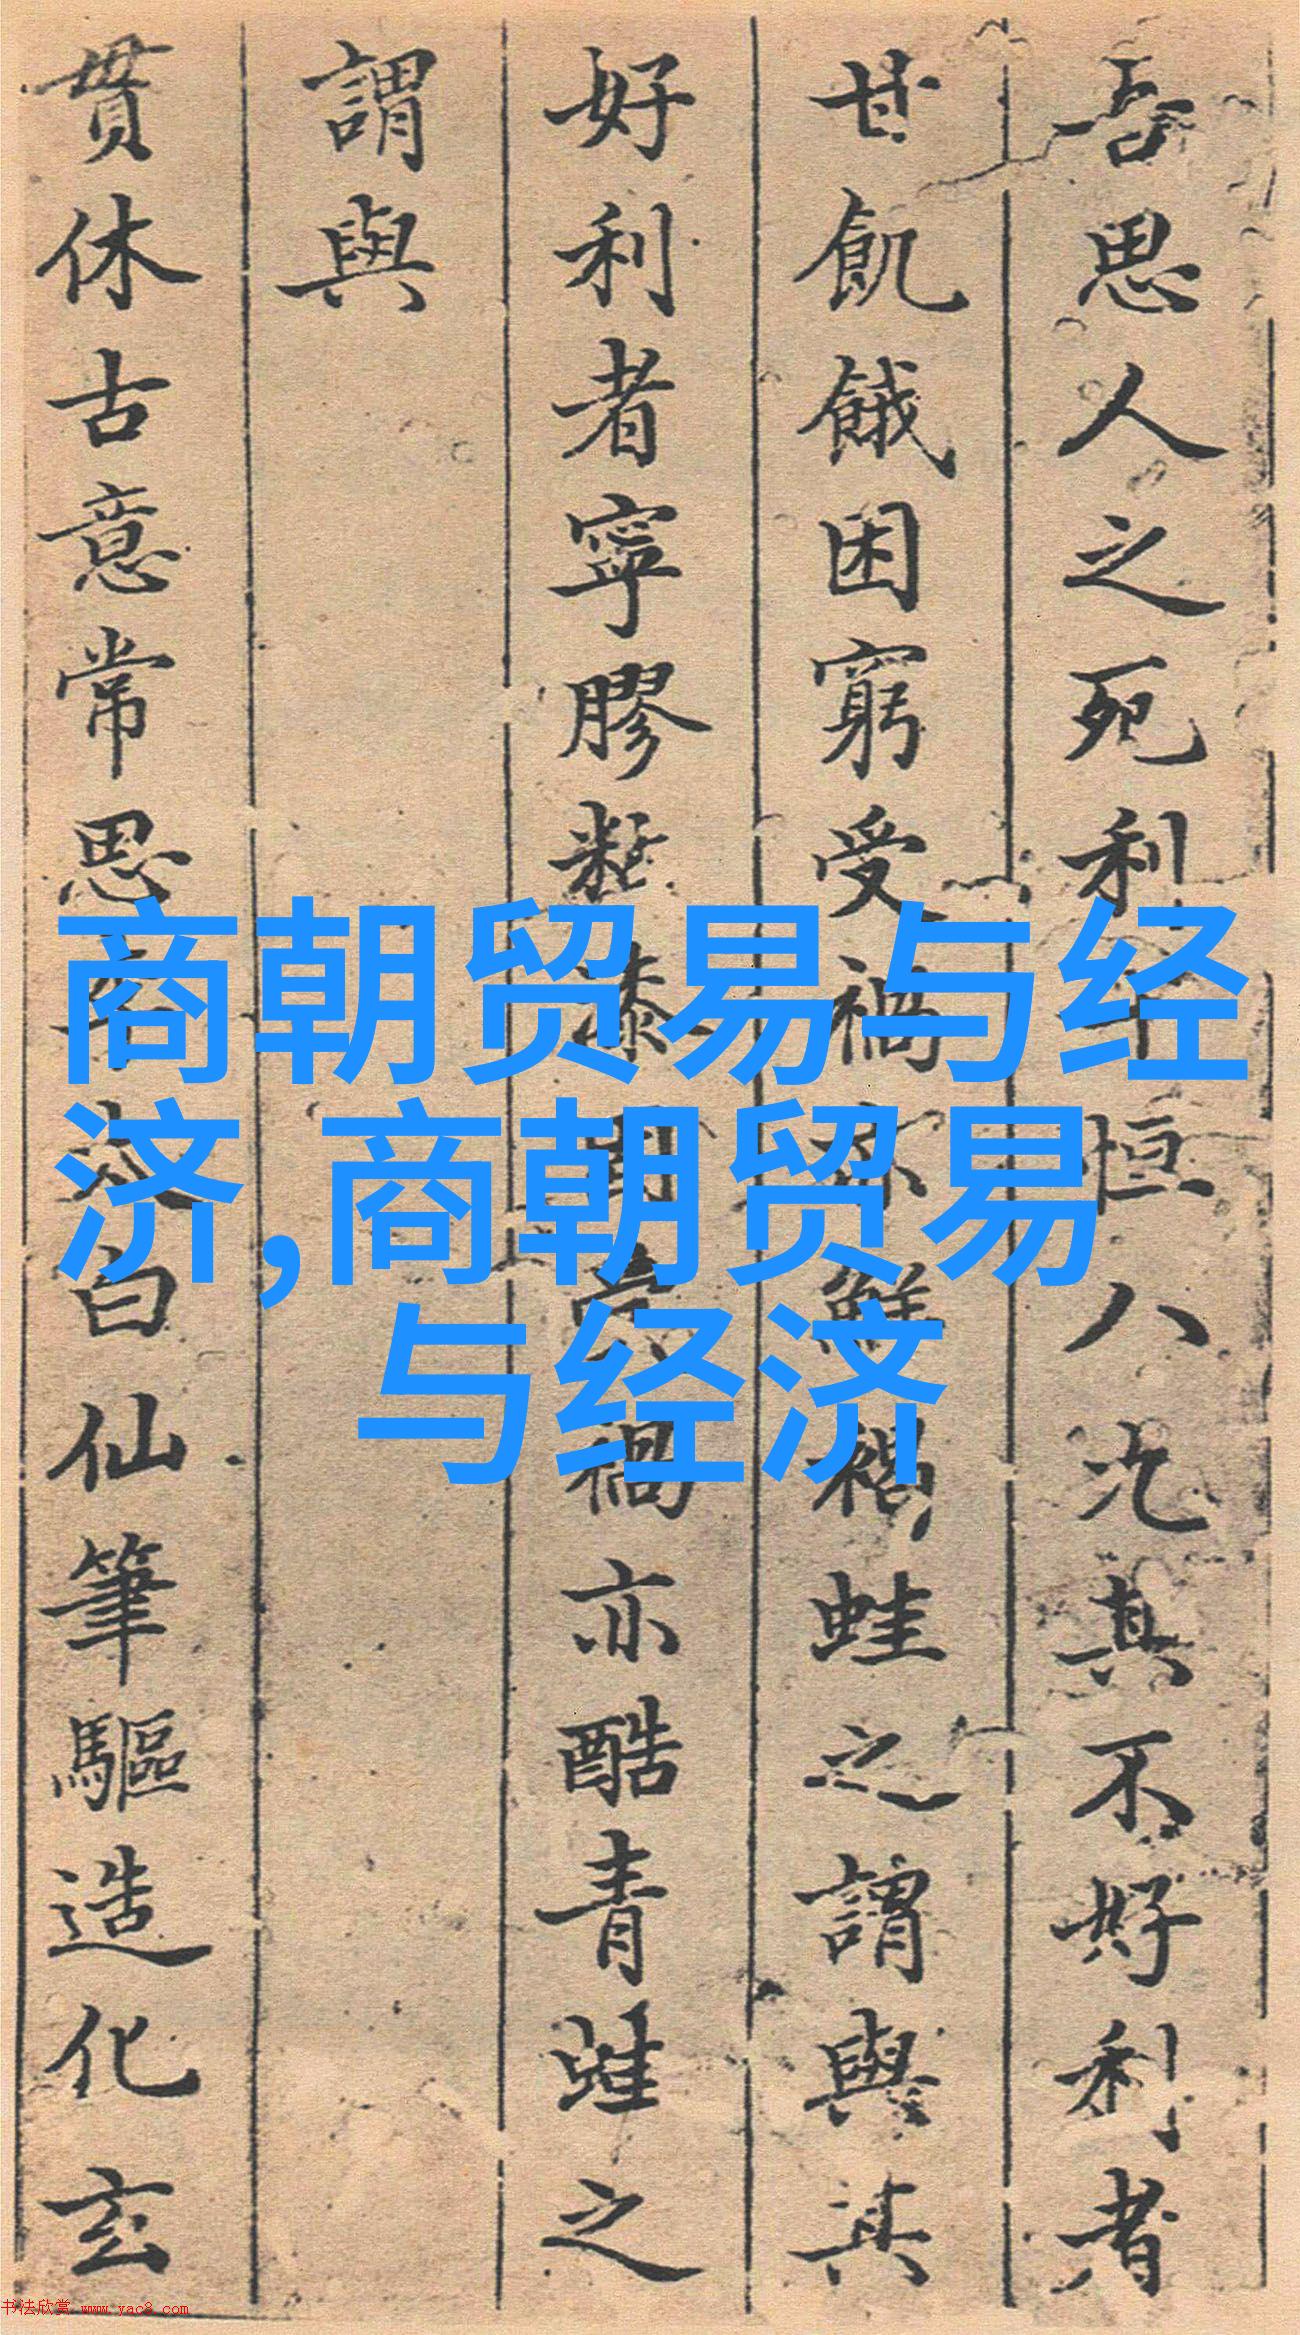 商朝贸易与经
济,商朝贸易
与经济
吾思人之死利恒八其不好利者
甘飢餓困窮受禍亦鮮禍蛙之謂與其
好利者寧膠黏漆禍亦酷青蛙之
謂與
貫休古意常思李太白仙筆驅造化玄
书法欣赏 www.yac8.com